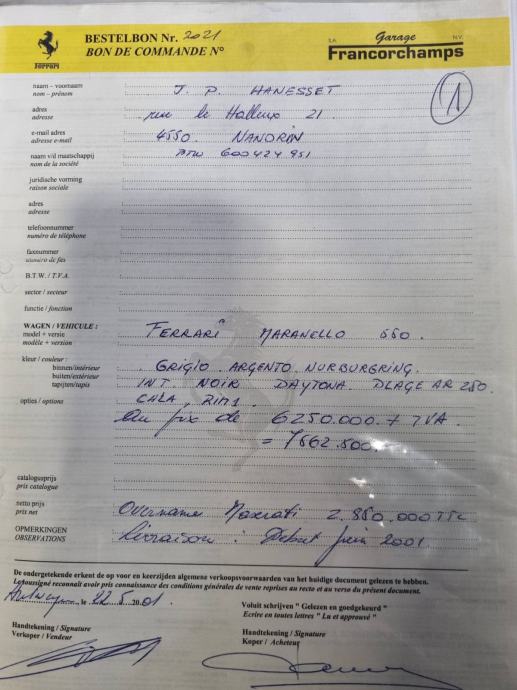 BESTELBON Nr. 2021
BON DE COMMANDE N°
Ferrari
S.A. Garage N.V.
Francorchamps
1
naam – voornaam
nom – prénom
J. P. HANESSET
adres
adresse
rue le Halleux 21
e-mail adres
adresse e-mail
4550. NANDRIN
naam v/d maatschappij
nom de la société
BTW 600424951
juridische vorming
raison sociale
adres
adresse
telefoonnummer
numéro de téléphone
faxnummer
numéro de fax
B.T.W. / T.V.A.
sector / secteur
functie / fonction
WAGEN / VEHICULE :
model + versie
modèle + version
FERRARI MARANELLO 550.
kleur / couleur :
binnen/intérieur
buiten/extérieur
tapijten/tapis
GRIGIO ARGENTO NURBURGRING.
INT. NOIR DAYTONA. PLAGE AR 250.
opties / options
CALA, RIM1
Au prix de 6250.000. + TVA
= 7562.500.
catalogusprijs
prix catalogue
netto prijs
prix net
Overname Maserati 2.850.000 TTC
OPMERKINGEN
OBSERVATIONS
Livraison : Début juin 2001
De ondergetekende erkent de op voor en keerzijden algemene verkoopsvoorwaarden van het huidige document gelezen te hebben.
Le soussigné reconnaît avoir pris connaissance des conditions générales de vente reprises au recto et au verso du présent document.
le 22.5.2001.
Voluit schrijven " Gelezen en goedgekeurd "
Ecrire en toutes lettres " Lu et approuvé "
Handtekening / Signature
Verkoper / Vendeur
Handtekening / Signature
Koper / Acheteur